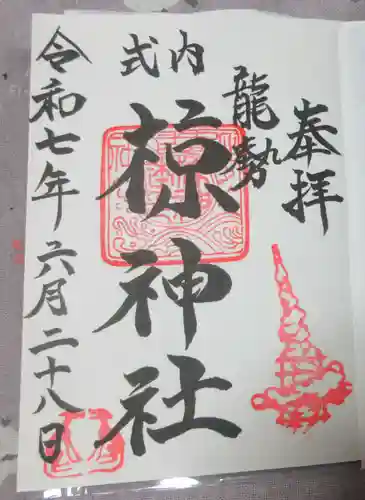 奉拝
龍勢
式内
椋神社
令和七年六月二十八日